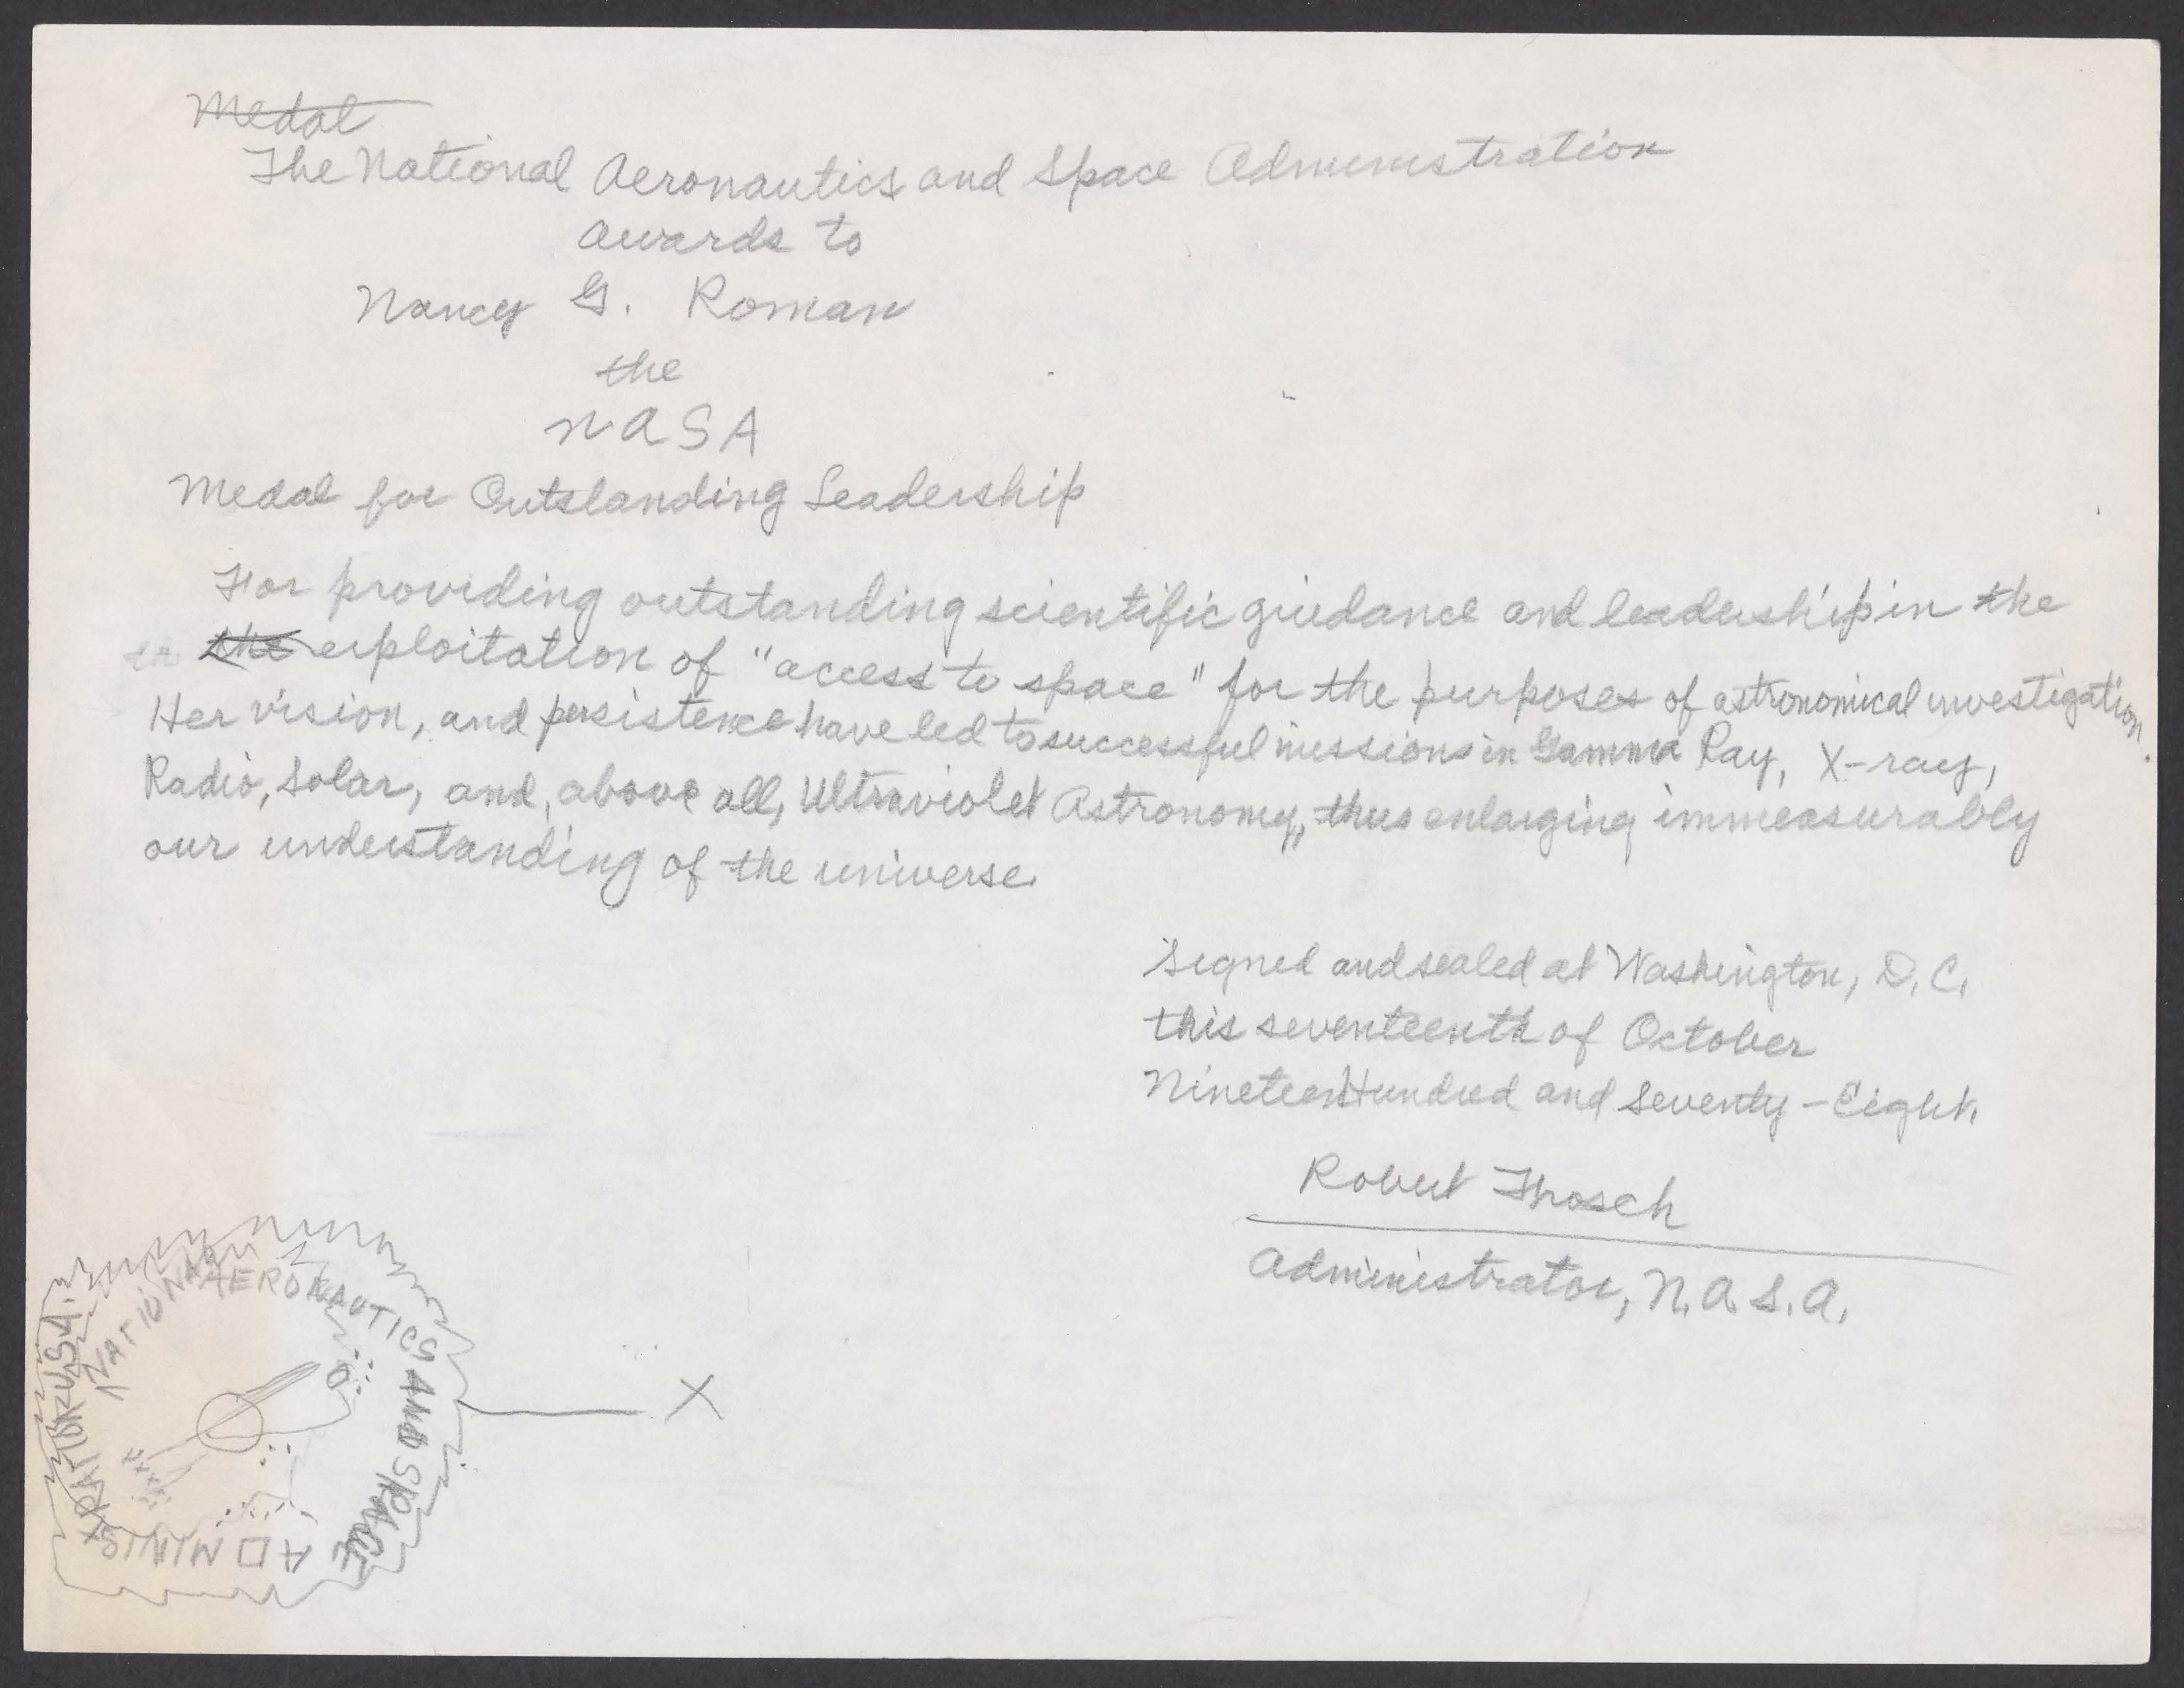 Medal
The National Aeronautics and Space Administration
awards to
Nancy G. Roman
the
NASA
Medal for Outstanding Leadership
For providing outstanding scientific guidance and leadership in the
the exploitation of "access to space" for the purposes of astronomical investigation.
Her vision, and persistence have led to successful missions in Gamma Ray, X-ray,
Radio, Solar, and, above all, Ultraviolet Astronomy, thus enlarging immeasurably
our understanding of the universe.
Signed and sealed at Washington, D.C.
this seventeenth of October
Nineteen Hundred and Seventy-Eight.
Robert Frosch
Administrator, N.A.S.A.
NATIONAL AERONAUTICS AND SPACE ADMINISTRATION U.S.A.
X